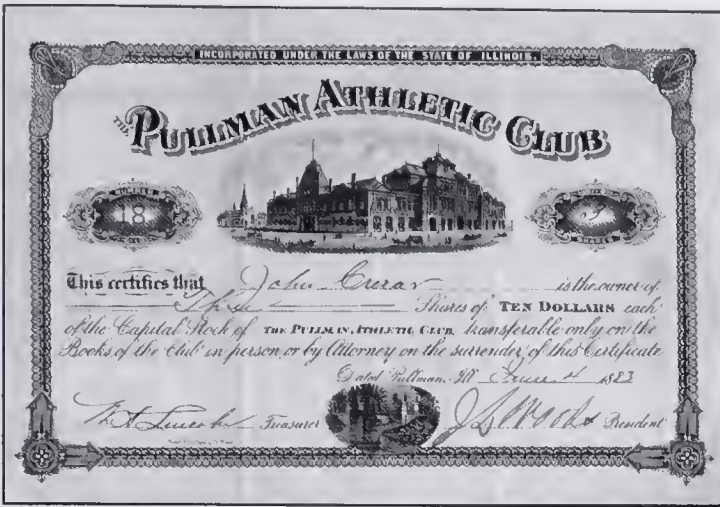 INCORPORATED UNDER THE LAWS OF THE STATE OF ILLINOIS.
THE PULLMAN ATHLETIC CLUB
18
SHARES
This certifies that John Crerar is the owner of
Three Shares of TEN DOLLARS each
of the Capital Stock of THE PULLMAN ATHLETIC CLUB, transferable only on the
Books of the Club in person or by Attorney on the surrender of this Certificate
Dated Pullman, Ill 1883
Treasurer President